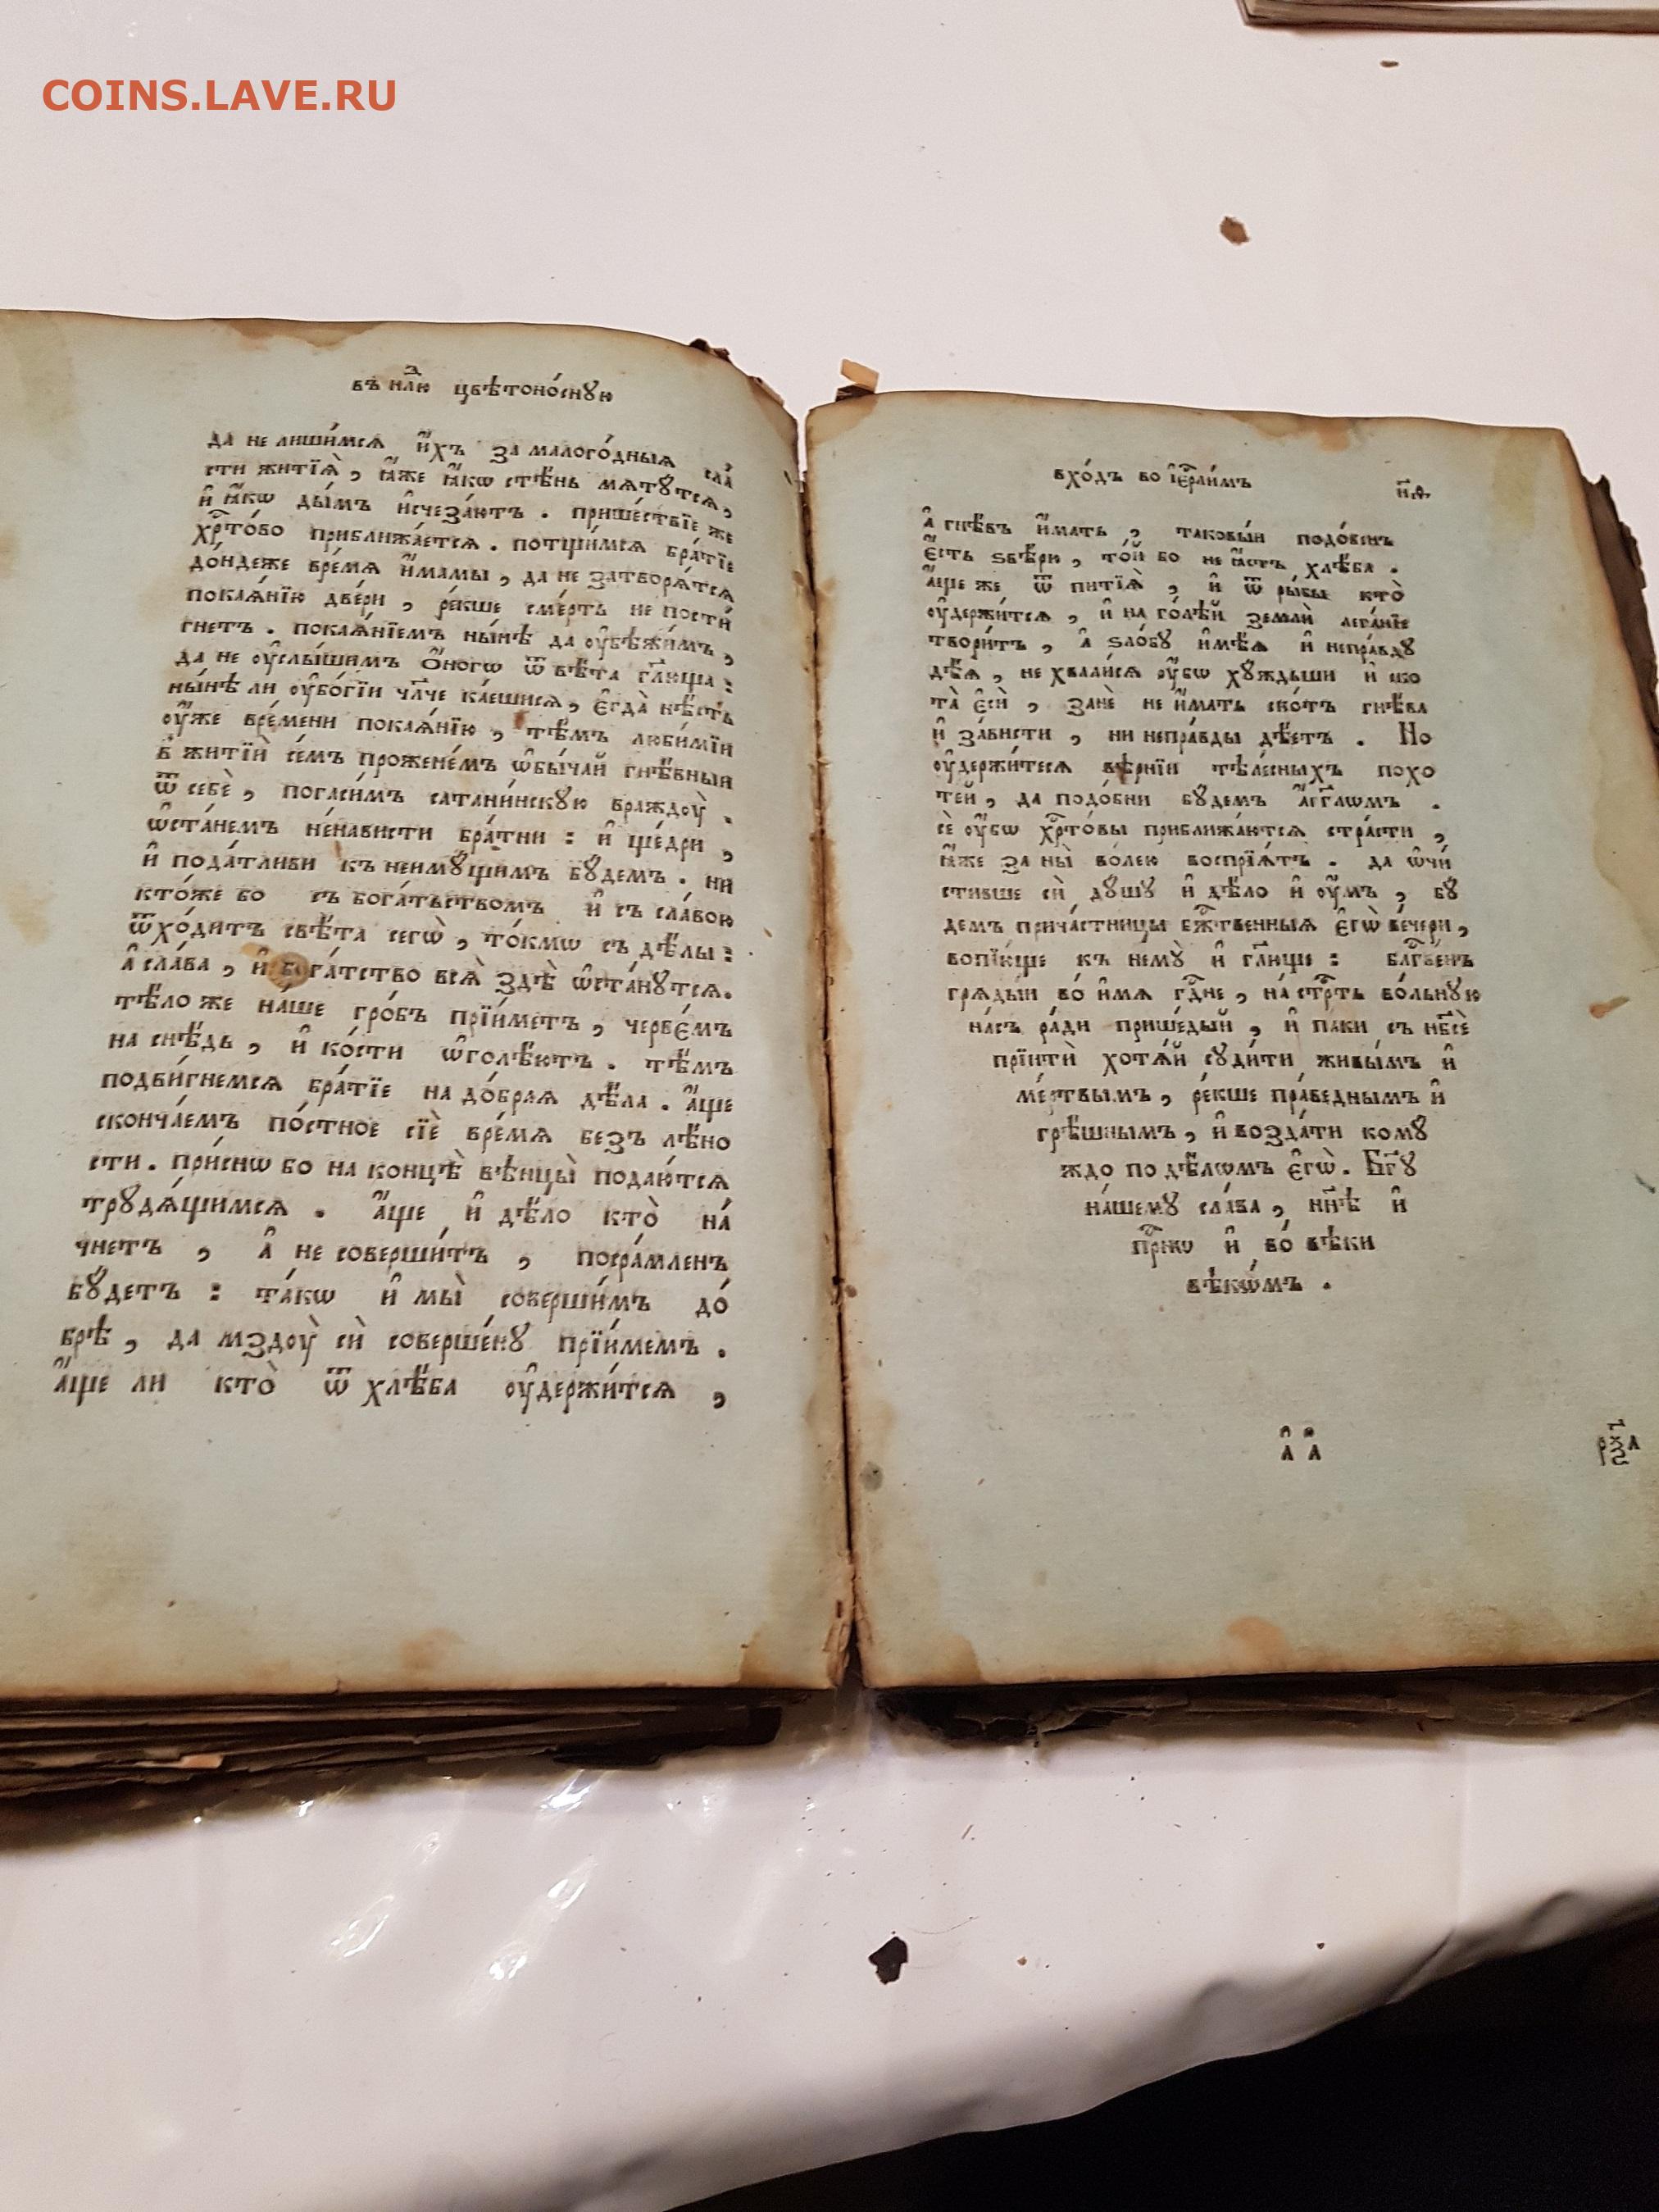 COINS.LAVE.RU
въ нⷣлю цвѣтоно́сную
да не лиши́мсѧ и҆́хъ за малого́дныѧ сла́
сти житїѧ̀, ꙗ҆́же ꙗ҆́кѡ стѣ́нь мѧту́тсѧ,
и҆ ꙗ҆́кѡ ды́мъ и҆счеза́ютъ. прише́ствїе же
хрⷭ҇то́во приближа́етсѧ. потщи́мсѧ бра́тїе
до́ндеже вре́мѧ и҆́мамы, да не затворѧ́тсѧ
покаѧ́нїю две́ри, ре́кше сме́рть не пости́
гнетъ. покаѧ́нїемъ ны́нѣ да ᲂу҆бѣжи́мъ,
да не ᲂу҆слы́шимъ ѻ҆́ногѡ ѿвѣ́та гл҃юща:
ны́нѣ ли ᲂу҆бо́гїи чл҃че ка́ешисѧ, є҆гда̀ нѣ́сть
ᲂу҆́же вре́мени покаѧ́нїю, тѣ́мъ люби́мїи
в житїи се́мъ проженє́мъ ѡ҆бы́чай гнѣ́вный
ѿ себѐ, погаси́мъ сатани́нскую враждꙋ̀.
ѡ҆ста́немъ не́нависти бра́тни: и҆ ще́дри,
и҆ пода́тливи къ неиму́щимъ бу́демъ. ни
кто́же бо съ бога́тьствомъ и҆ съ сла́вою
ѿхо́дитъ свѣ́та сегѡ̀, то́кмѡ съ дѣ́лы:
а҆ сла́ва, и҆ бога́тство всѧ̀ здѣ̀ ѡ҆ста́нутсѧ.
тѣ́ло же на́ше гро́бъ прїи́метъ, червє́мъ
на снѣ́дь, и҆ ко́сти ѡ҆голѣ́ютъ. тѣ́мъ
подви́гнемсѧ бра́тїе на до́браѧ дѣ́ла. а҆́ще
сконча́емъ по́стное сїѐ вре́мѧ безъ лѣ́но
сти. при́снѡ бо на концѣ̀ вѣнцы̀ подаю́тсѧ
трудѧ́щимсѧ. а҆́ще и҆ дѣ́ло кто̀ на́
чнетъ, а҆ не соверши́тъ, посра́мленъ
бу́детъ: та́кѡ и҆ мы̀ соверши́мъ до́
брѣ, да мздꙋ̀ сѝ соверше́ну прїи́мемъ.
а҆́ще ли кто̀ ѿ хлѣ́ба ᲂу҆держи́тсѧ,
вхо́дъ во і҆ерⷭ҇ли́мъ
н҃ѳ
а҆ гнѣ́въ и҆́мать, таковы́и подо́бенъ
є҆́сть ѕвѣ́ри, то́й бо не ꙗ҆́сть хлѣ́ба.
а҆́ще же ѿ питїѧ̀, и҆ ѿ ры́бы кто̀
ᲂу҆держи́тсѧ, и҆ на го́лѣй землѝ лега́нїе
твори́тъ, а҆ ѕло́бу и҆мѣ́ѧ и҆ непра́вду
дѣ́ѧ, не хвали́сѧ ᲂу҆́бѡ ху́ждьши и҆ ско
та̀ є҆сѝ, занѐ не и҆́мать ско́тъ гнѣ́ва
и҆ за́висти, ни непра́вды дѣ́етъ. Но
ᲂу҆держи́тесѧ вѣ́рнїи тѣле́сныхъ похо
те́й, да подо́бни бу́демъ а҆́гг҃лѡмъ.
сѐ ᲂу҆́бѡ хрⷭ҇то́вы приближа́ютсѧ стра́сти,
ꙗ҆́же за ны̀ во́лею воспрїѧ́тъ. да ѡ҆чи́
стивше сѝ ду́шу и҆ дѣ́ло и҆ ᲂу҆́мъ, бу́
демъ прича́стницы бжⷭ҇твенныѧ є҆гѡ̀ ве́чери,
вопїю́ще къ нему̀ и҆ гл҃юще: блг҃ве́нъ
грѧды́и во и҆́мѧ гдⷭ҇не, на стрⷭ҇ть во́льную
на́съ ра́ди прише́дый, и҆ па́ки съ нб҃сѐ
прїитѝ хотѧ́й суди́ти живы́мъ и҆
ме́ртвымъ, ре́кше пра́веднымъ и҆
грѣ́шнымъ, и҆ возда́ти кому̀
ждо по дѣ́лѡмъ є҆гѡ̀. Бг҃у
на́шему сла́ва, нн҃ѣ и҆
прⷭ҇нѡ и҆ во вѣ́ки
вѣкѡ́мъ.
а҆ а҆
рѯ҃а